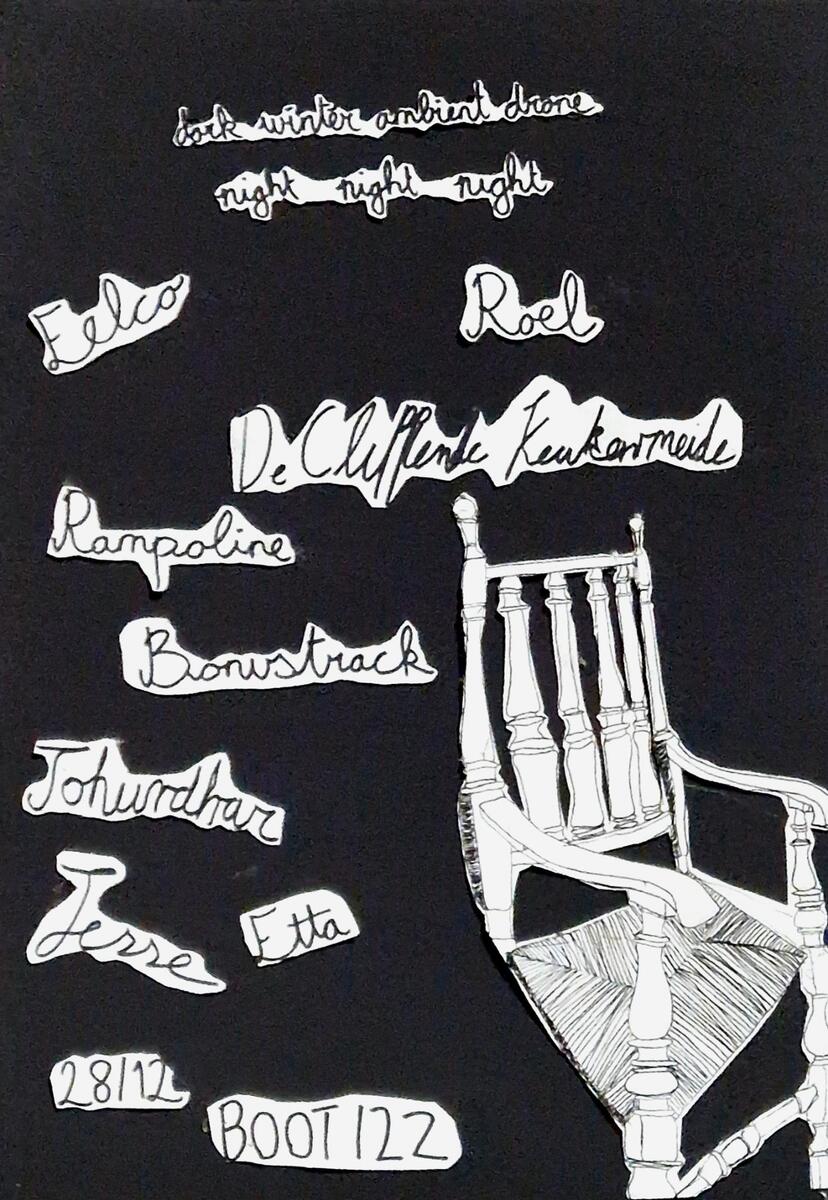 dark winter ambient drone
night night night
Eelco
Roel
De Keukenmeide
Rampoline
Bonustrack
Johundhar
Jesse
Etta
28/12
BOOT 122